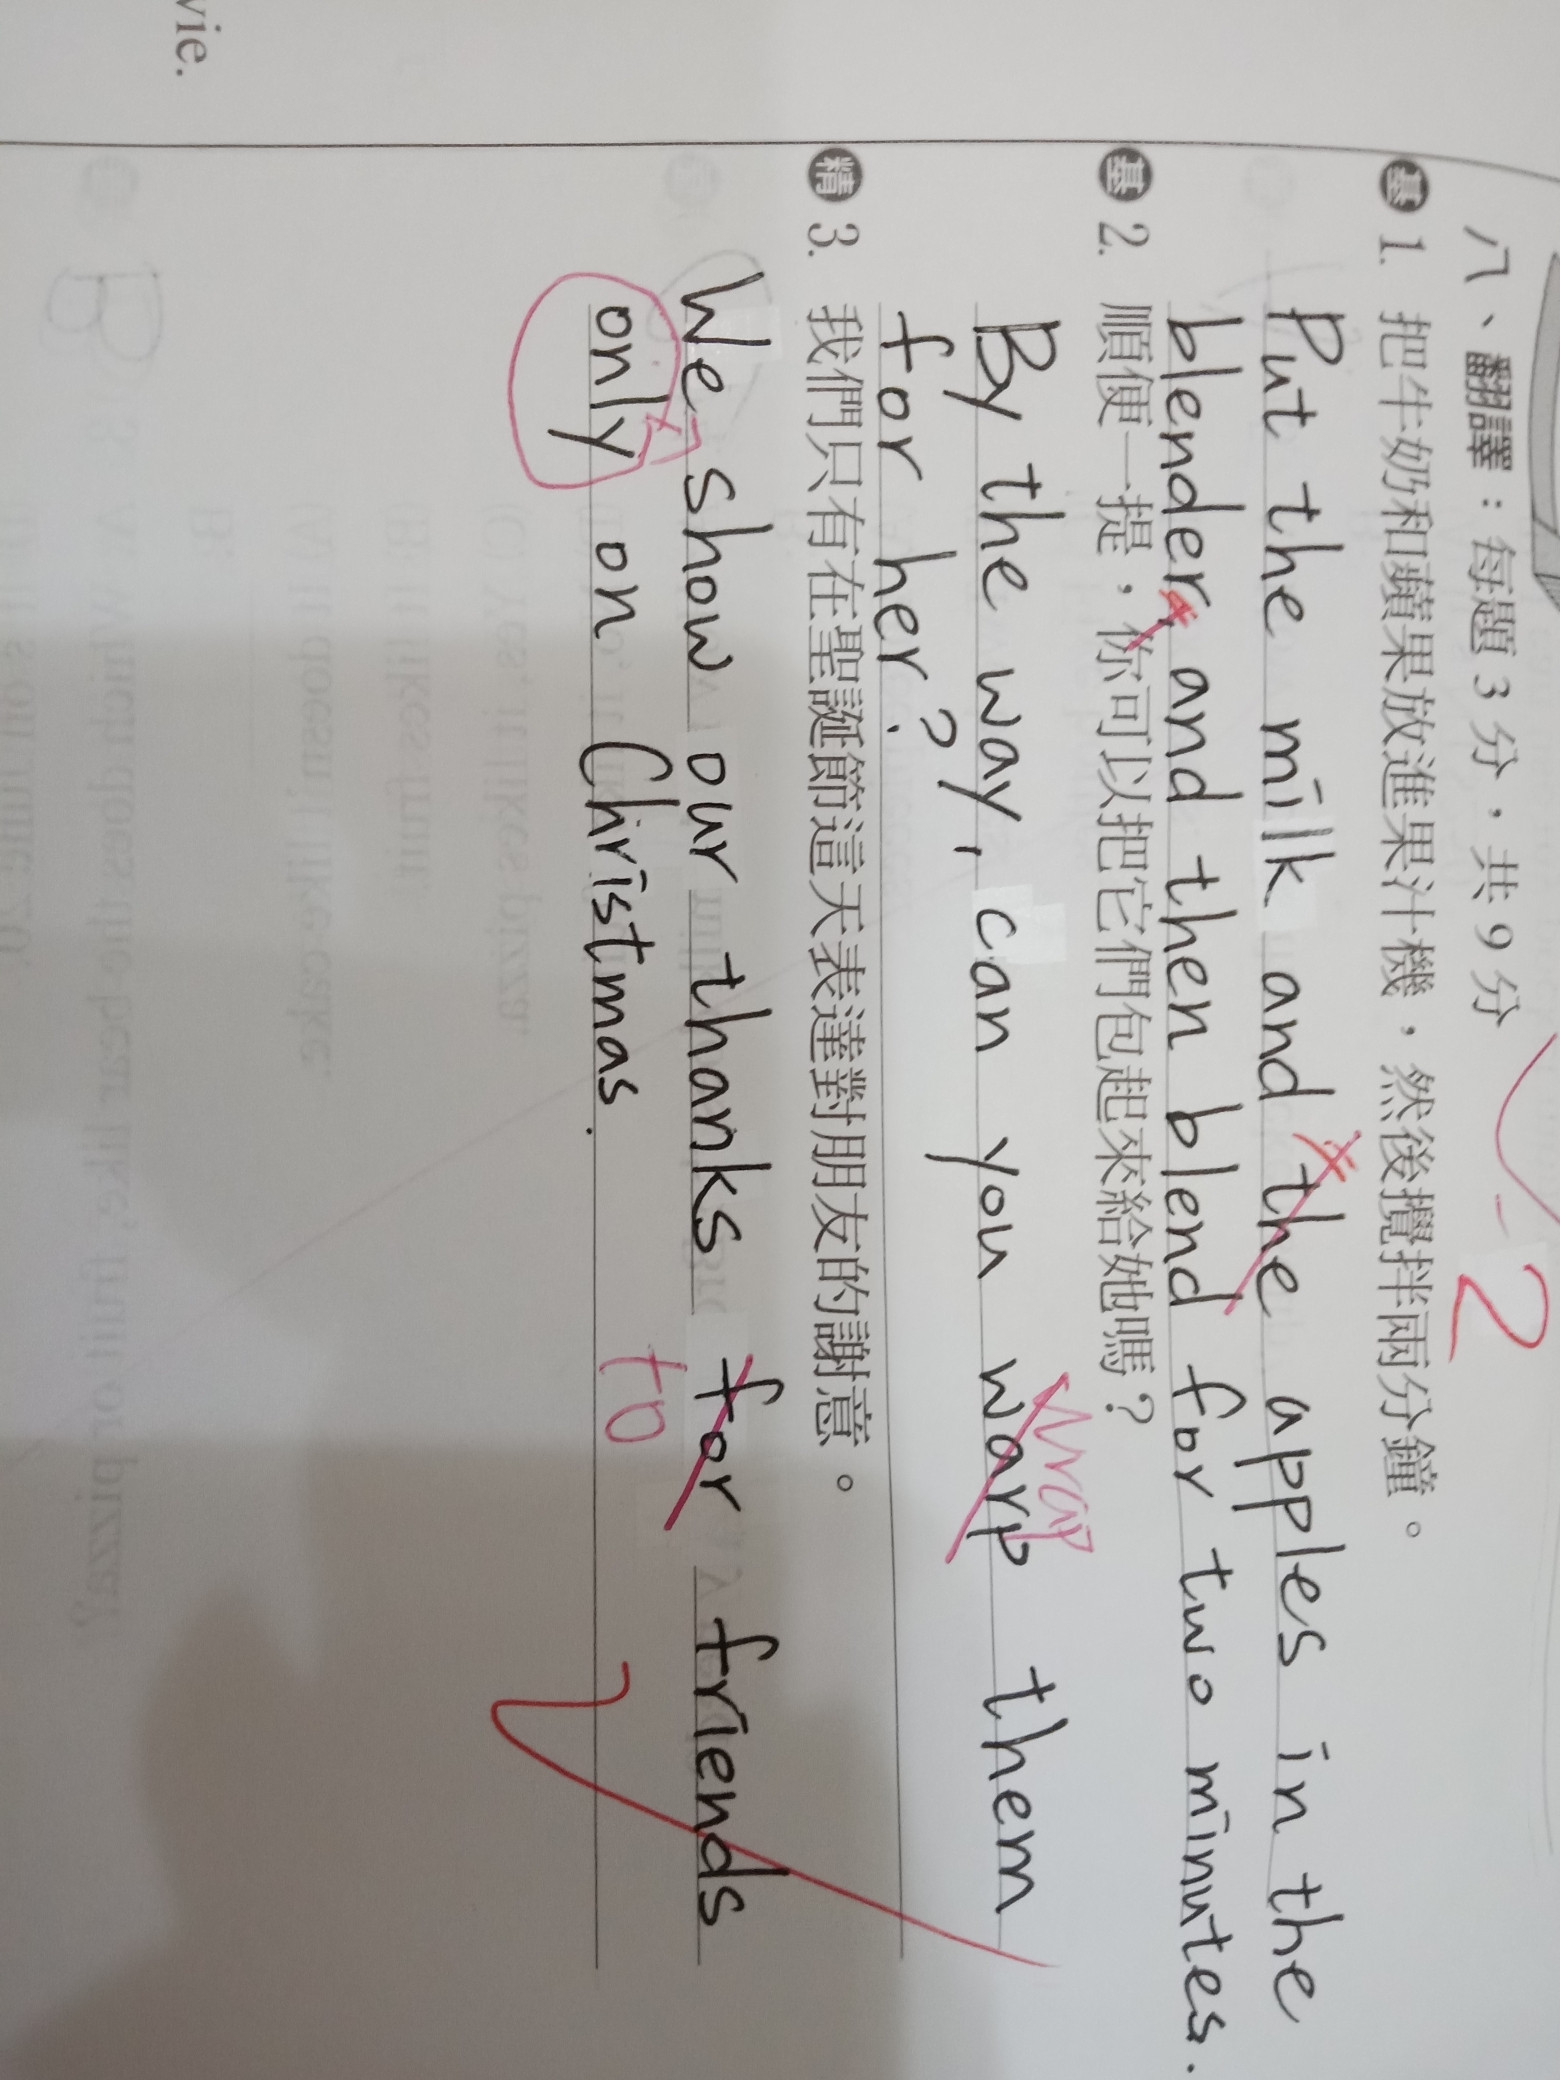 vie.
八、翻譯：每題 3 分，共 9 分
-2
基 1. 把牛奶和蘋果放進果汁機，然後攪拌兩分鐘。
Put the milk and the apples in the
blender, and then blend for two minutes.
基 2. 順便一提，你可以把它們包起來給她嗎？
wrap
By the way, can you warp them
for her?
精 3. 我們只有在聖誕節這天表達對朋友的謝意。
We show our thanks for friends
to
only on Christmas.